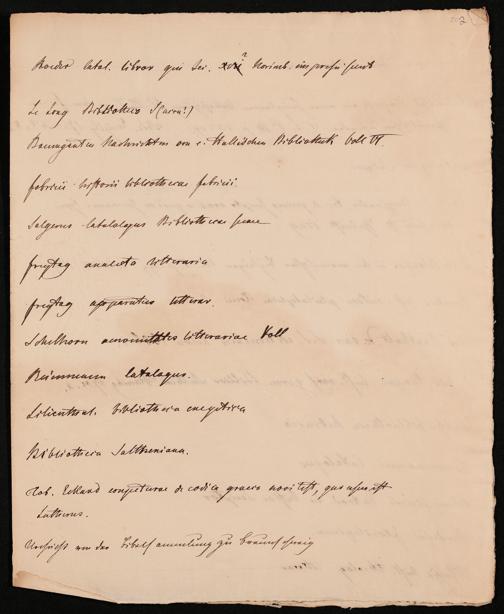 202
Roeder Catal. libror qui Sec. XVI? Norimb. impressi sunt
Le Long Bibliotheca S(acra?)
Baumgarten Nachrichten von e. Hallischen Bibliothek Voll VI.
Fabricius historia bibliothecae Fabricii.
Salgerus Catalogus Bibliothecae suae
Freytag analecta litteraria
Freytag apparatus litterar.
Schelhorn amoenitates litterariae Voll
Reimmann Catalogus.
Lilienthal. bibliotheca exegetica
Bibliotheca Saltheniana.
Tob. Eckhard conjecturae de codice graeco novi test, quo usus est
Lutherus.
Nachricht von der Bibelsammlung zu Braunschweig